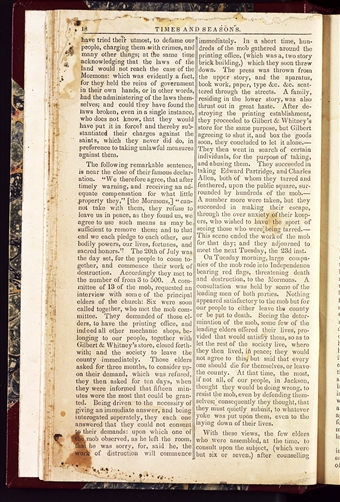 18 TIMES AND SEASONS.
have tried their utmost, to defame our
people, charging them with crimes, and
many other things; at the same time
acknowledging that the laws of the
land would not reach the case of the
Mormons: which was evidently a fact,
for they held the reins of government
in their own hands, or in other words,
had the administering of the laws them-
selves; and could they have found the
laws broken, even in a single instance,
who does not know, that they would
have put it in force? and thereby sub-
stantiated their charges against the
saints, which they never did do, in
preference to taking unlawful measures
against them.
The following remarkable sentence,
is near the close of their famous decla-
ration. "We therefore agree, that after
timely warning, and receiving an ad-
equate compensation for what little
property they," [the Mormons,] "can-
not take with them, they refuse to
leave us in peace, as they found us, we
agree to use such means as may be
sufficient to remove them; and to that
end we each pledge to each other, our
bodily powers, our lives, fortunes, and
sacred honors." The 20th of July was
the day set, for the people to come to-
gether, and commence their work of
destruction. Accordingly they met to
the number of from 3 to 500. A com-
mittee of 13 of the mob, requested an
interview with some of the principal
elders of the church: Six were soon
called together, who met the mob com-
mittee. They demanded of those el-
ders, to have the printing office, and
indeed all other mechanic shops, be-
longing to our people, together with
Gilbert & Whitney's store, closed forth-
with; and the society to leave the
county immediately. Those elders
asked for three months, to consider up-
on their demand, which was refused,
they then asked for ten days, when
they were informed that fifteen min-
utes were the most that could be gran-
ted. Being driven to the necessity of
giving an immediate answer, and being
interrogated seperately, they each one
answered that they could not consent
to their demands: upon which one of
the mob observed, as he left the room,
that he was sorry, for, said he, the
work of distruction will commence
immediately. In a short time, hun-
dreds of the mob gathered around the
printing office, (which was a, two story
brick building,) which they soon threw
down. The press was thrown from
the upper story, and the aparatus,
book work, paper, type &c. &c. scat-
tered through the streets. A family,
residing in the lower story, was also
thrust out in great haste. After de-
stroying the printing establishment,
they proceeded to Gilbert & Whitney's
store for the same purpose, but Gilbert
agreeing to shut it, and box the goods
soon, they concluded to let it alone.—
They then went in search of certain
individuals, for the purpose of taking,
and abusing them. They succeeded in
taking Edward Partridge, and Charles
Allen, both of whom they tarred and
feathered, upon the public square, sur-
rounded by hundreds of the mob.—
A number more were taken, but they
succeeded in making their escape,
through the over anxiety of their keep-
ers, who wished to have the sport of
seeing those who were being tarred.—
This scene ended the work of the mob
for that day; and they adjourned to
meet the next Tuesday, the 23d inst.
On Tuesday morning, large compa-
nies of the mob rode into Independence
bearing red flags, threatening death
and destruction, to the Mormons. A
consultation was held by some of the
leading men of both parties. Nothing
appeared satisfactory to the mob but for
our people to either leave the county
or be put to death. Seeing the deter-
mination of the mob, some few of the
leading elders offered their lives, pro-
vided that would satisfy them, so as to
let the rest of the society live, where
they then lived, in peace; they would
not agree to this, but said that every
one should die for themselves, or leave
the county. At that time, the most,
if not all, of our people, in Jackson,
thought they would be doing wrong, to
resist the mob, even by defending them-
selves; consequently they thought, that
they must quietly submit, to whatever
yoke was put upon them, even to the
laying down of their lives.
With these views, the few elders
who were assembled, at the time, to
consult upon the subject, (which were
but six or seven,) after counselling